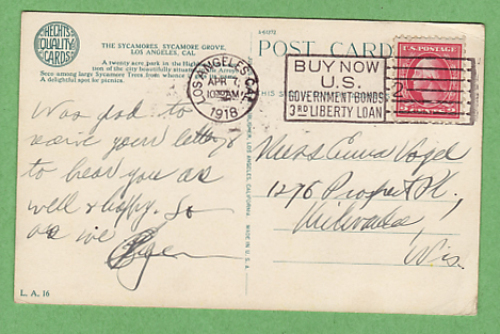 HECHTS
QUALITY
CARDS
THE SYCAMORES, SYCAMORE GROVE,
LOS ANGELES, CAL.
A twenty acre park in the High
tion of the city beautifully situat Arroyo
Seco among large Sycamore Trees from whence
A delightful spot for picnics.
POST CARD
LOS ANGELES, CAL.
APR
10 AM
1918
BUY NOW
U.S.
GOVERNMENT BONDS
3RD LIBERTY LOAN
U.S. POSTAGE
2
Was glad to
receive your letter &
to hear you as
well & happy. So
are we
Miss Emma Vogel
1276 Prospect Pl.
Milwaukee
Wis.
LOS ANGELES, CALIFORNIA
MADE IN U.S.A.
L. A. 16